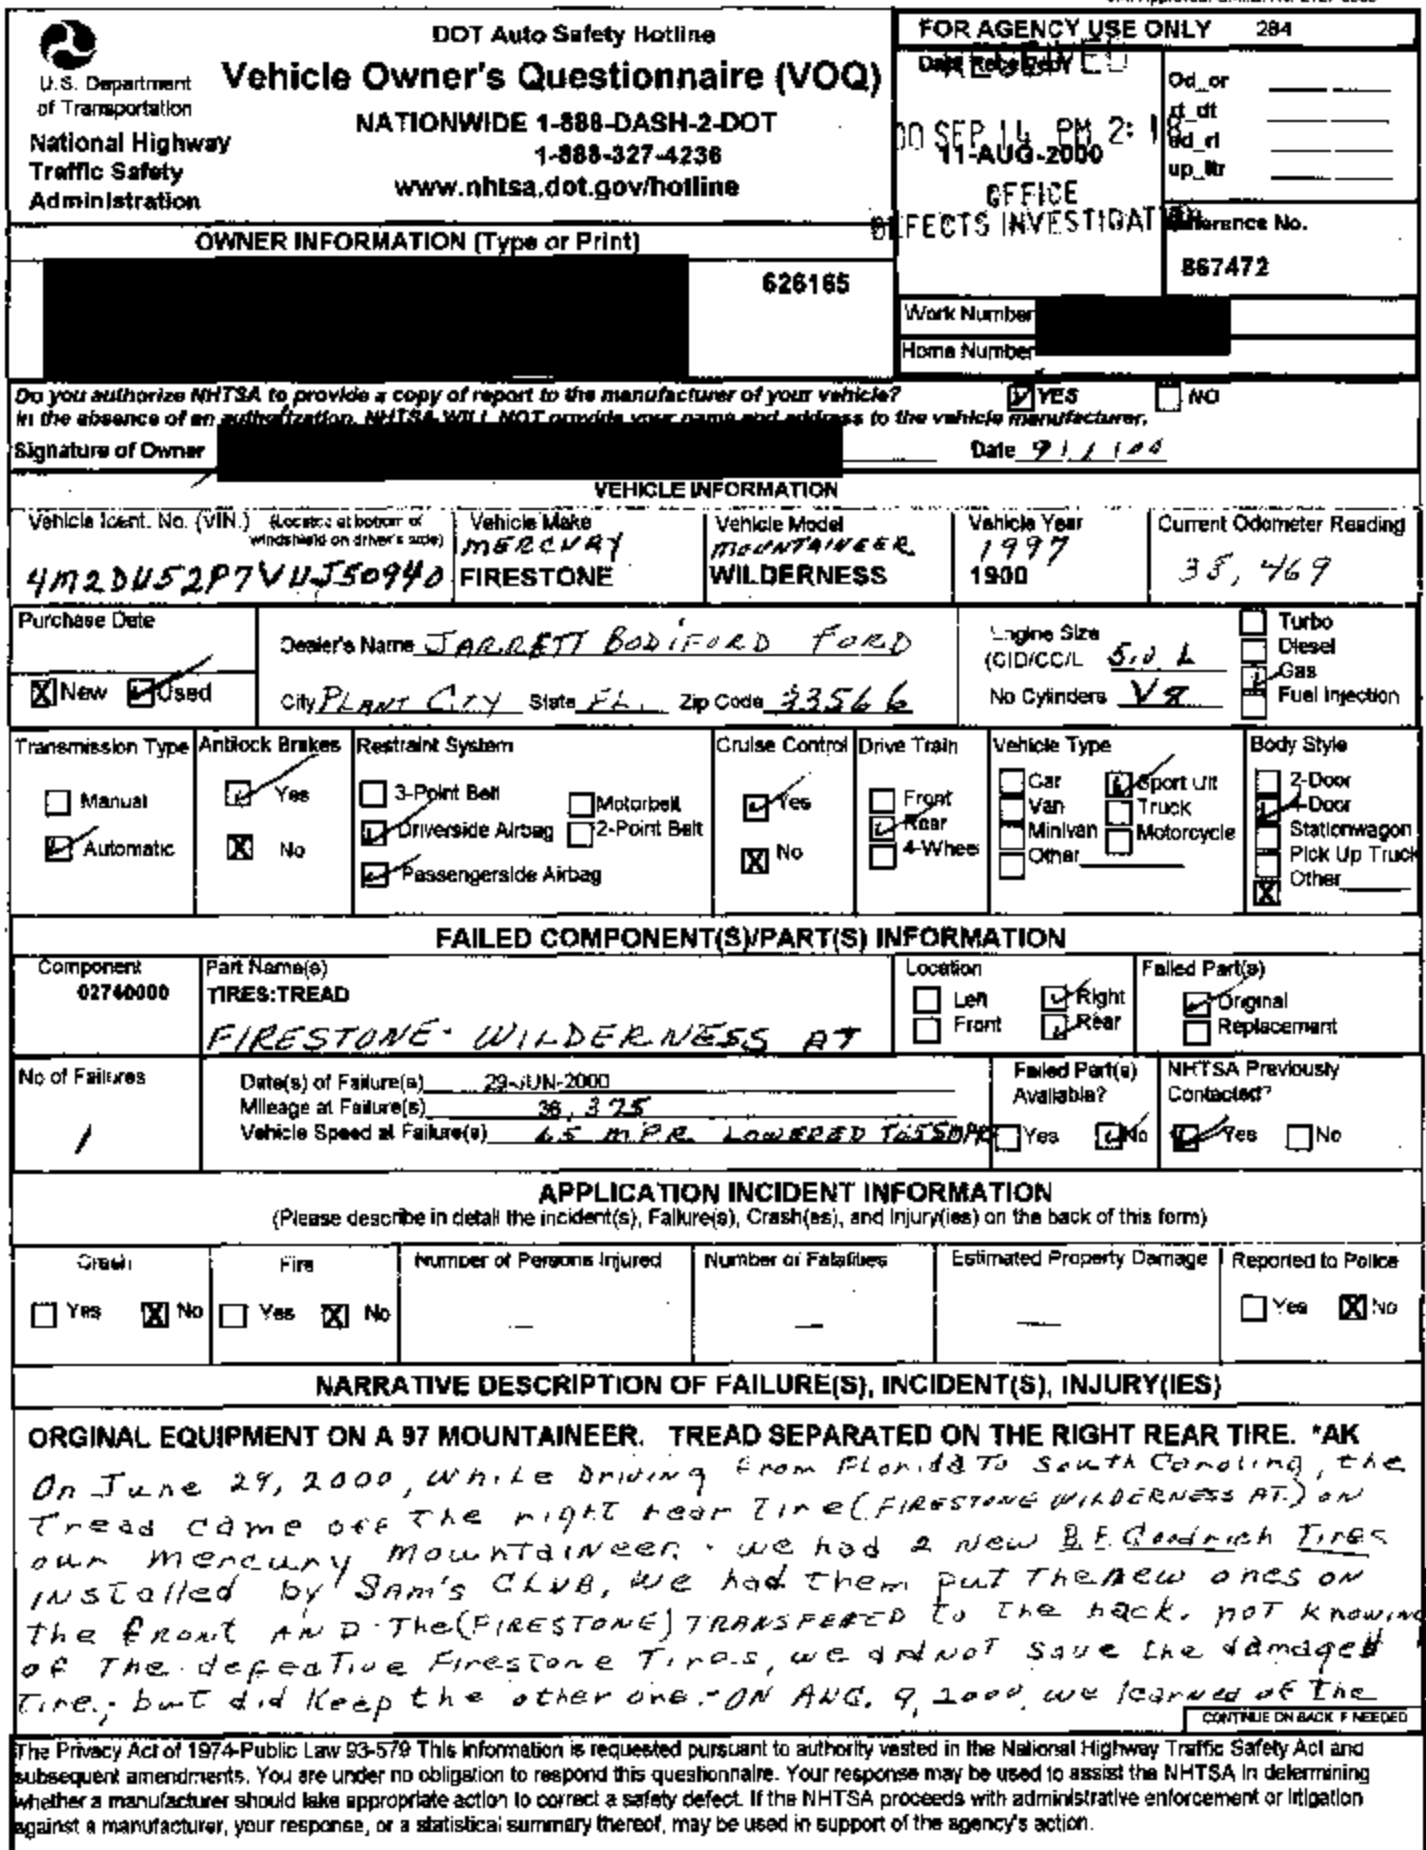 DOT Auto Safety Hotline
Vehicle Owner's Questionnaire (VOQ)
NATIONWIDE 1-888-DASH-2-DOT
1-888-327-4236
www.nhtsa.dot.gov/hotline
U.S. Department
of Transportation
National Highway
Traffic Safety
Administration
FOR AGENCY USE ONLY 284
Date Received
00 SEP 14 PM 2:
11-AUG-2000
OFFICE
DEFECTS INVESTIGATION
Od_or
rt_dt
od_rl
up_ltr
Reference No.
867472
OWNER INFORMATION (Type or Print)
626165
Work Number
Home Number
Do you authorize NHTSA to provide a copy of report to the manufacturer of your vehicle? YES NO
In the absence of an authorization, NHTSA WILL NOT provide your name and address to the vehicle manufacturer.
Signature of Owner Date 9/1/00
VEHICLE INFORMATION
Vehicle Ident. No. (VIN.) (Located at bottom of windshield on driver's side)
4M2DU52P7VUJ50940
Vehicle Make
MERCURY
FIRESTONE
Vehicle Model
MOUNTAINEER
WILDERNESS
Vehicle Year
1997
1900
Current Odometer Reading
38,469
Purchase Date
X New Used
Dealer's Name JARRETT BODIFORD FORD
City PLANT CITY State FL. Zip Code 33566
Engine Size
(CID/CC/L 5.0 L
No Cylinders V8
Turbo
Diesel
Gas
Fuel Injection
Transmission Type
Manual
Automatic
Antilock Brakes
Yes
X No
Restraint System
3-Point Belt
Motorbelt
Driverside Airbag
2-Point Belt
Passengerside Airbag
Cruise Control
Yes
X No
Drive Train
Front
Rear
4-Wheel
Vehicle Type
Car Sport Utl
Van Truck
Minivan Motorcycle
Other
Body Style
2-Door
4-Door
Stationwagon
Pick Up Truck
X Other
FAILED COMPONENT(S)/PART(S) INFORMATION
Component
02740000
Part Name(s)
TIRES:TREAD
FIRESTONE - WILDERNESS AT
Location
Left Right
Front Rear
Failed Part(s)
Original
Replacement
No of Failures
1
Date(s) of Failure(s) 29-JUN-2000
Mileage at Failure(s) 36,375
Vehicle Speed at Failure(s) 65 M.P.R. LOWERED TO 55MPR
Failed Part(s)
Available?
Yes No
NHTSA Previously
Contacted?
Yes No
APPLICATION INCIDENT INFORMATION
(Please describe in detail the incident(s), Failure(s), Crash(es), and Injury(ies) on the back of this form)
Crash
Yes X No
Fire
Yes X No
Number of Persons Injured
—
Number of Fatalities
—
Estimated Property Damage
—
Reported to Police
Yes X No
NARRATIVE DESCRIPTION OF FAILURE(S), INCIDENT(S), INJURY(IES)
ORGINAL EQUIPMENT ON A 97 MOUNTAINEER. TREAD SEPARATED ON THE RIGHT REAR TIRE. *AK
On June 29, 2000, while Driving from Florida To South Carolina, the
Tread came off The right rear Tire (FIRESTONE WILDERNESS AT.) ON
our mercury Mountaineer. we had 2 New B.F. Goodrich Tires
INSTalled by SAM'S CLUB, We had them put The new ones on
the front AND The (FIRESTONE) TRANSFERED to The back. not knowing
of The defeaTive Firestone Tires, we did NOT save the damaged
Tire; but did Keep the other one. - ON AUG. 9, 2000, we learned of The
CONTINUE ON BACK IF NEEDED
The Privacy Act of 1974-Public Law 93-579 This information is requested pursuant to authority vested in the National Highway Traffic Safety Act and
subsequent amendments. You are under no obligation to respond this questionnaire. Your response may be used to assist the NHTSA in determining
whether a manufacturer should take appropriate action to correct a safety defect. If the NHTSA proceeds with administrative enforcement or litigation
against a manufacturer, your response, or a statistical summary thereof, may be used in support of the agency's action.